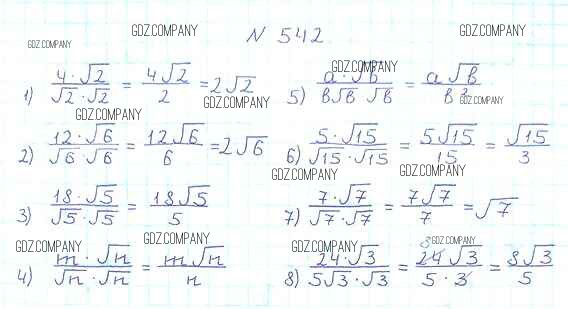 GDZ.COMPANY GDZ.COMPANY GDZ.COMPANY
N 542
1) 4·√2 / √2·√2 = 4√2 / 2 = 2√2
GDZ.COMPANY
GDZ.COMPANY
5) a·√b / b√b √b = a√b / b²
GDZ.COMPANY
GDZ.COMPANY
GDZ.COMPANY
2) 12·√6 / √6·√6 = 12√6 / 6 = 2√6
6) 5·√15 / √15·√15 = 5√15 / 15 = √15 / 3
GDZ.COMPANY GDZ.COMPANY
3) 18·√5 / √5·√5 = 18√5 / 5
7) 7·√7 / √7·√7 = 7√7 / 7 = √7
GDZ.COMPANY GDZ.COMPANY GDZ.COMPANY GDZ.COMPANY
4) m·√n / √n·√n = m√n / n
8) 24·√3 / 5√3·√3 = 8 24√3 / 5·3 = 8√3 / 5